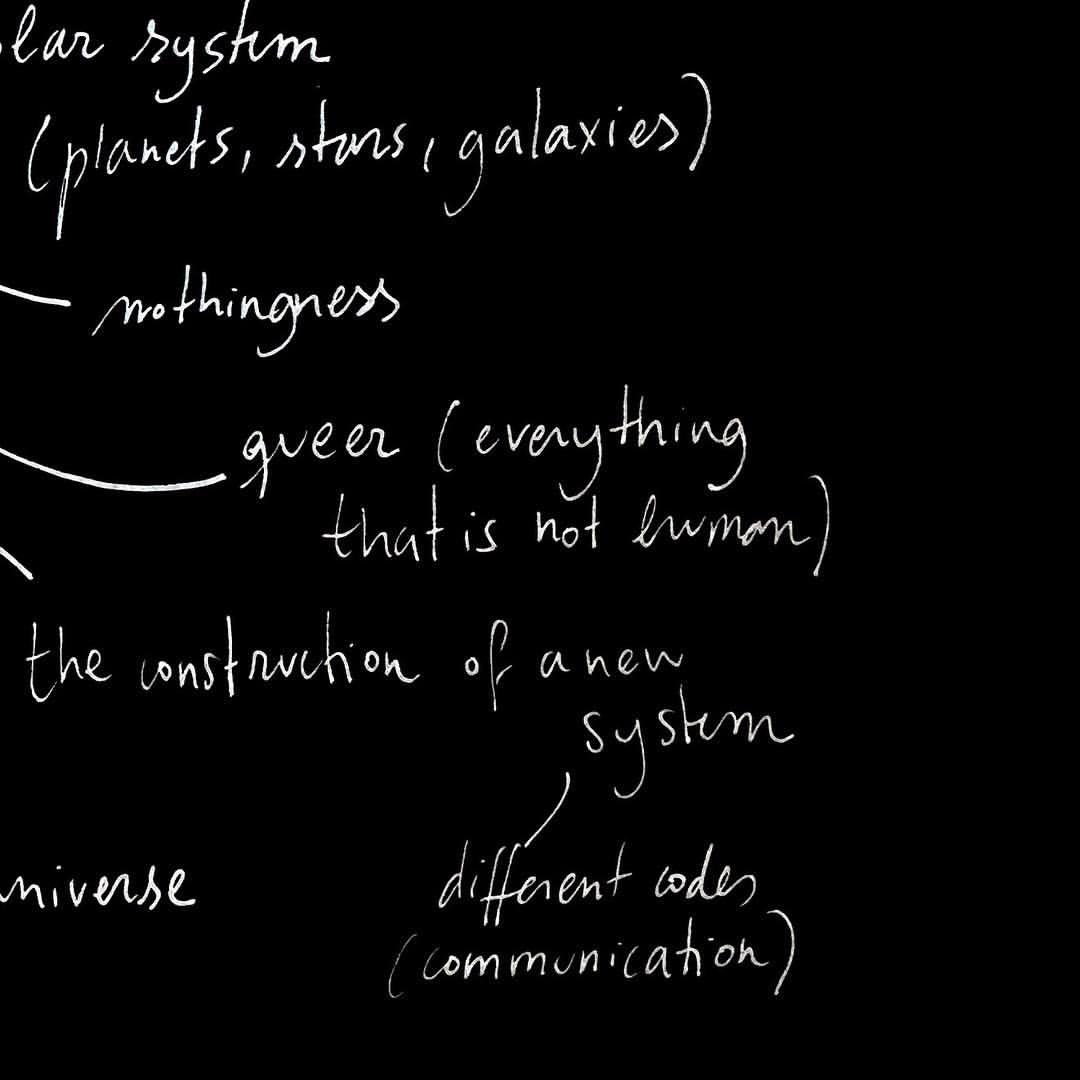 lar system
(planets, stars, galaxies)
nothingness
queer (everything
that is not human)
the construction of a new
system
niverse
different codes
(communication)